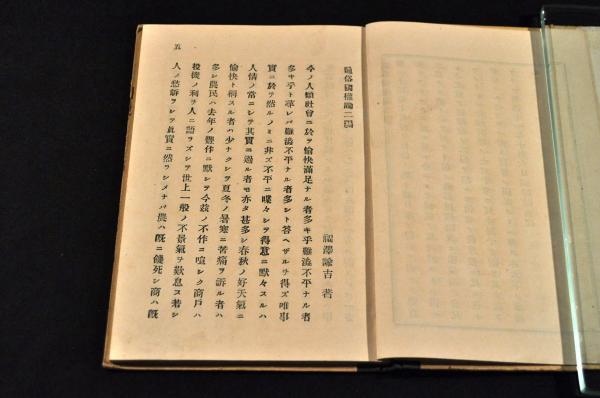 通俗國權論二編
福澤諭吉 著
今ノ人類社會ニ於テ愉快滿足ナル者多キ乎難澁不平ナル者
多キ乎ト尋レバ難澁不平ナル者多シト答ヘザルヲ得ズ唯事
實ニ於テ然ルノミニ非ズ不平ニ喋々シテ得意ニ默々スルハ
人情ノ常ニシテ其實ニ過ル者モ亦タ甚多シ春秋ノ好天氣ニ
愉快ト稱スル者ハ少ナクシテ夏冬ノ暑寒ニ苦痛ヲ訴ル者ハ
多シ農民ハ去年ノ豐作ニ默シテ今茲ノ不作ニ喧シク商戸ハ
投機ノ利ヲ人ニ語ラズシテ世上一般ノ不景氣ヲ歎息ス若シ
人ノ愁訴ヲシテ眞實ニ然ラシメナバ農ハ既ニ饑死シ商ハ既
五